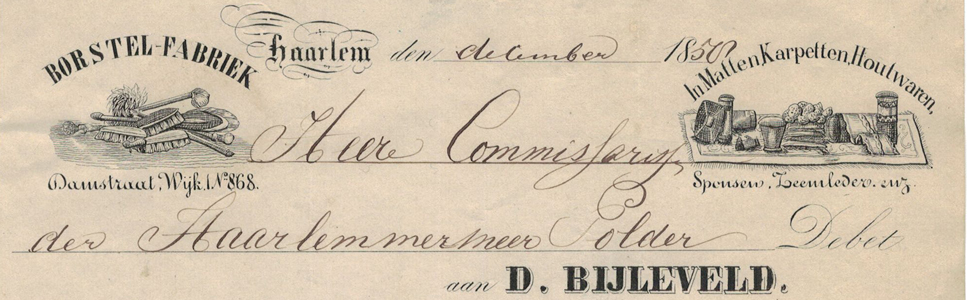 BORSTEL-FABRIEK
Haarlem den december 1850
In Matten, Karpetten, Houtwaren,
Heere Commissaris
Damstraat, Wijk 1 No 868.
Sponsen, Zeemleder. enz.
der Haarlemmermeer Polder Debet
aan D. BIJLEVELD.